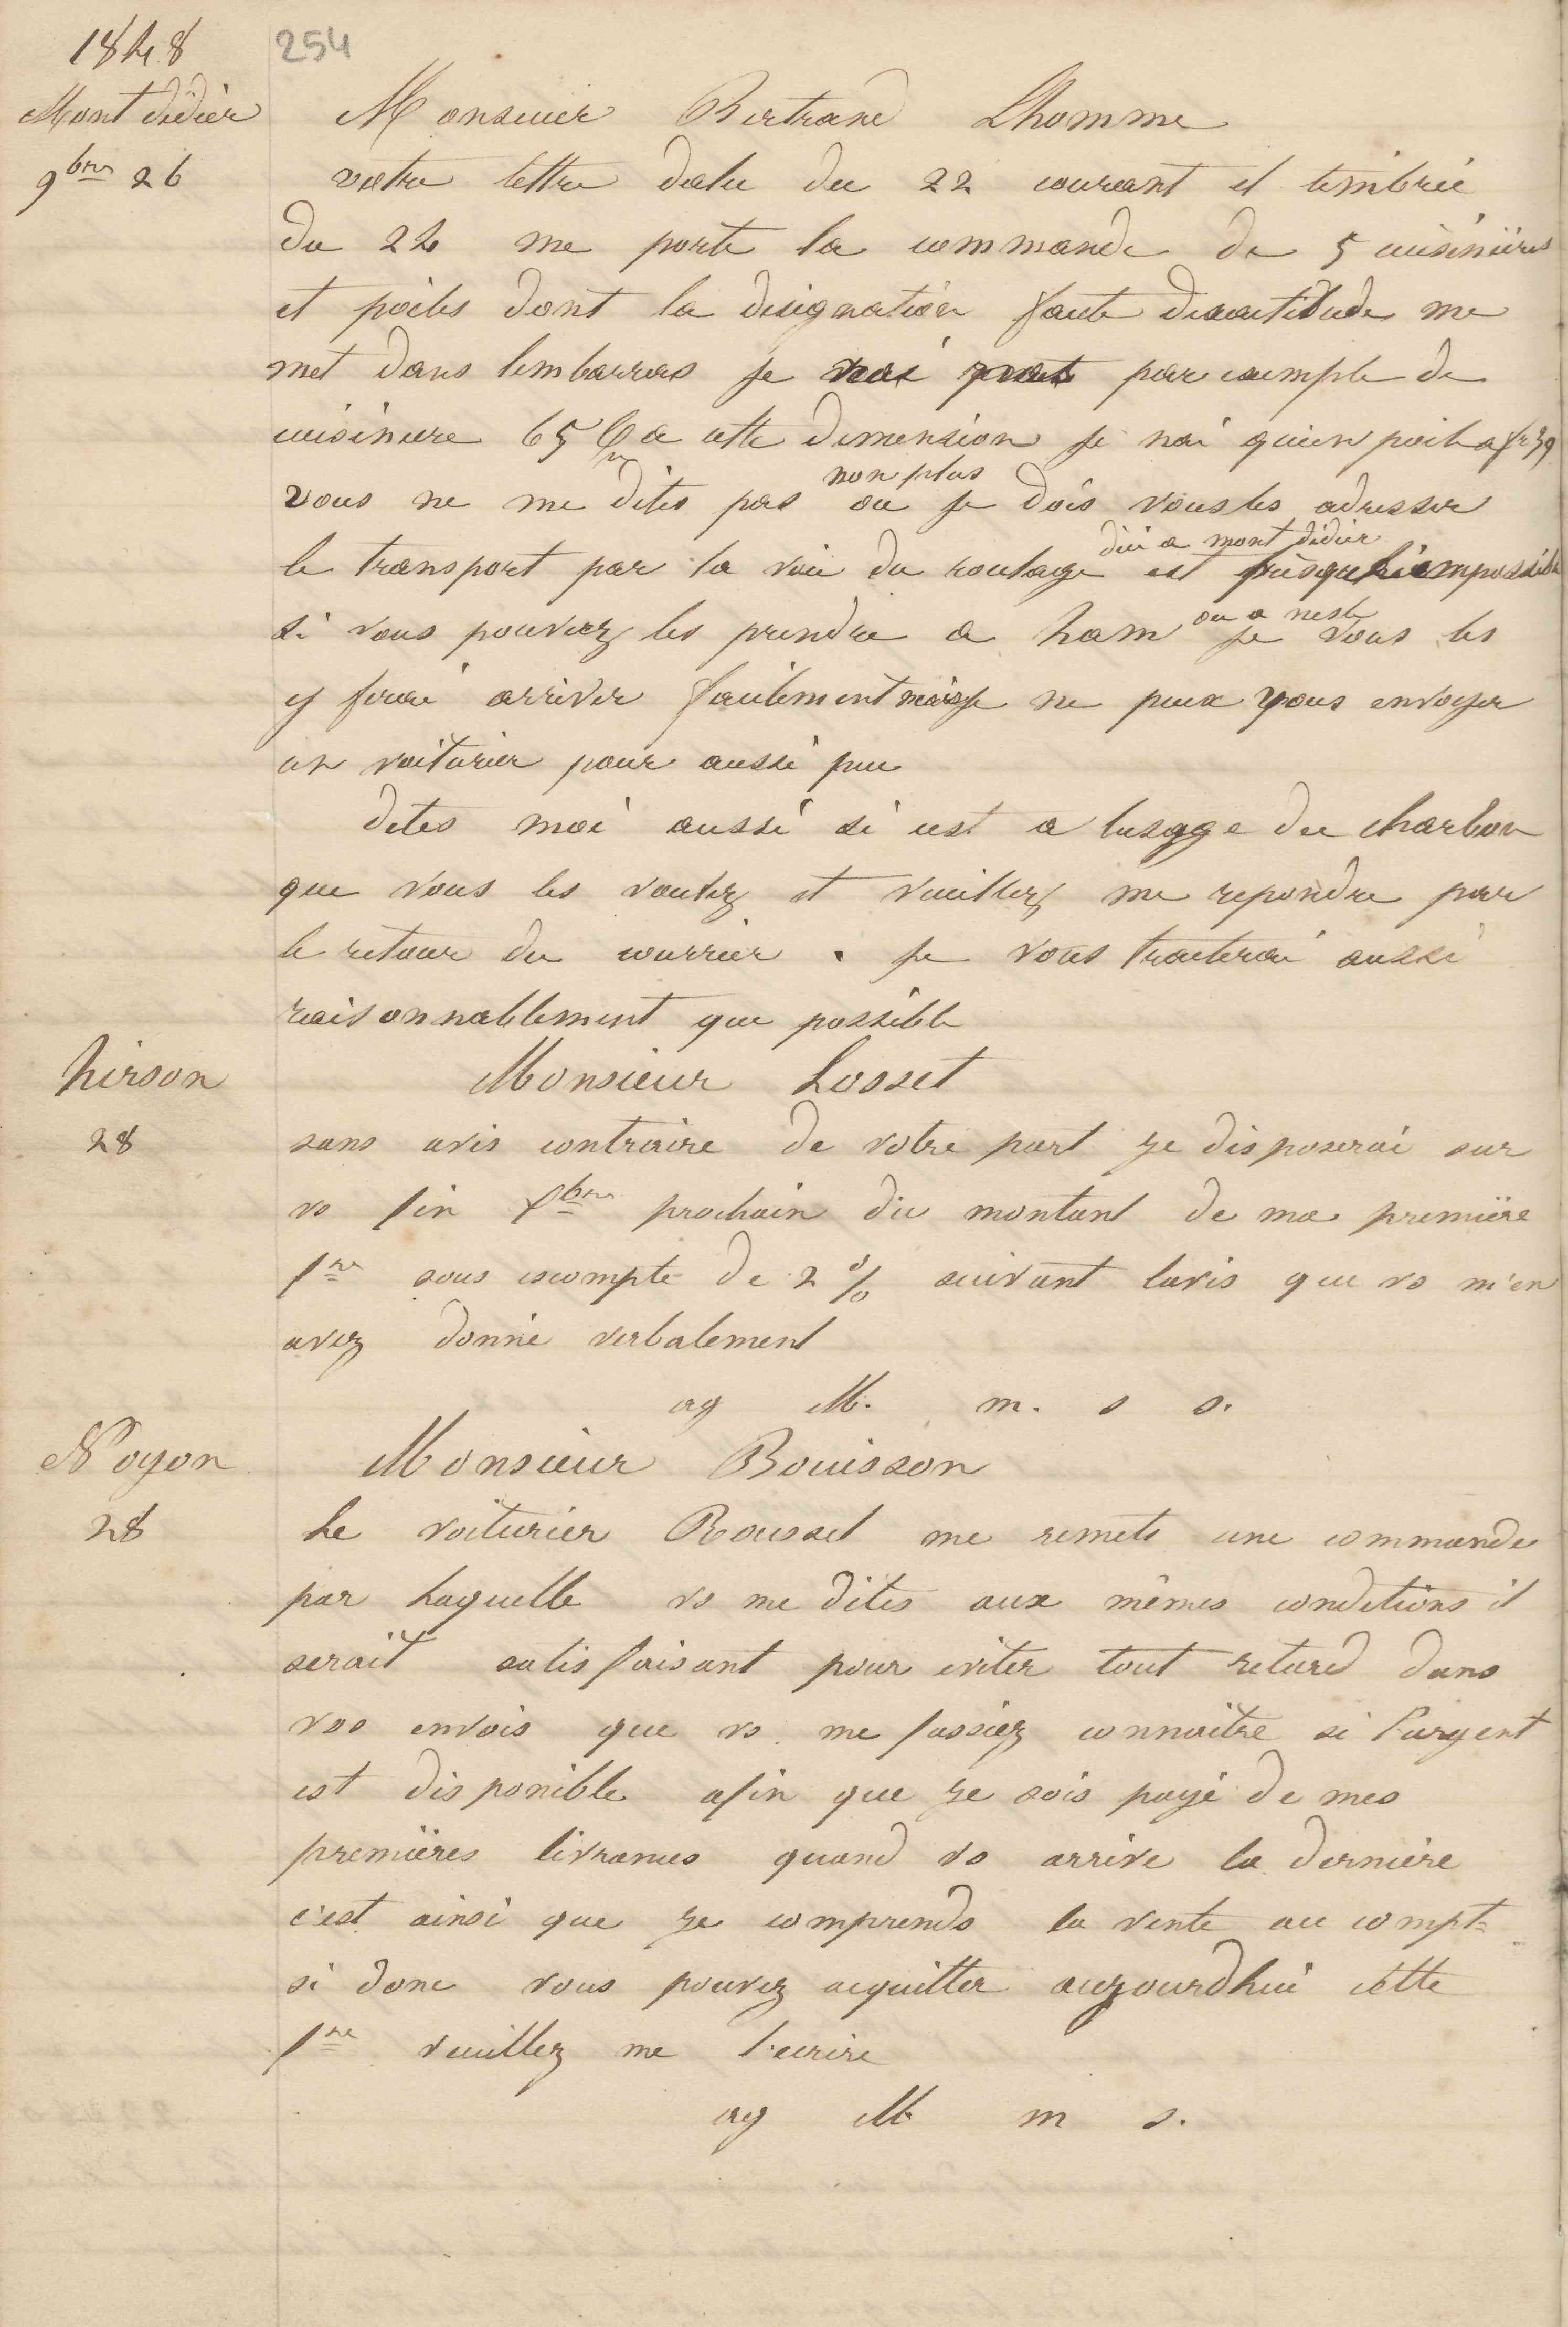 1848
254
Mont didier
9bre 26
Monsieur Bertrand Lhomme
votre lettre datée du 22 courant et timbrée
du 24 me porte la commande de 5 cuisinières
et poëles dont la designation faute dexactitude me
met dans lembarras je nai pas par exemple de
cuisiniere 65 a cette dimension je nai quun poele a fr 39
non plus
vous ne me dites pas ou je dois vous les adresser
dici a mont didier
le transport par la voie du roulage est presque impossible
ou a nesle
si vous pouvez les prendre a ham je vous les
y ferai arriver facilement mais je ne peux vous envoyer
un voiturier pour aussi peu
dites moi aussi si cest a lusage du charbon
que vous les voulez et veuillez me repondre par
le retour du courrier . je vous traiterai aussi
raisonnablement que possible
hirson
Monsieur Losset
28
sans avis contraire de votre part je disposerai sur
vs fin Xbre prochain du montant de ma première
fre sous escompte de 2 % suivant lavis que vs m'en
avez donné verbalement
ag M. m. s s.
Noyon
Monsieur Bouisson
28
Le voiturier Rousset me remets une commande
par Laquelle vs me dites aux mêmes conditions il
serait satisfaisant pour eviter tout retard dans
vos envois que vs me fassiez connaitre si l'argent
est disponible afin que je sois payé de mes
premières livrances quand vs arrive la dernière
c'est ainsi que je comprends la vente au compt
si donc vous pouvez acquitter aujourdhui cette
fre veuillez me l'ecrire
ag M m s.